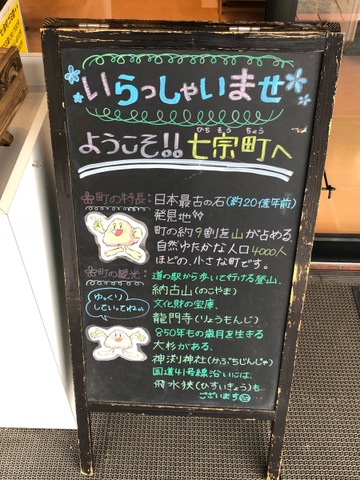 いらっしゃいませ
ようこそ!! 七宗町へ
ひちそうちょう
町の特長:日本最古の石(約20億年前)
発見地
町の約9割を山が占める、
自然ゆたかな人口4000人
ほどの、小さな町です。
町の観光:道の駅から歩いて行ける登山、
納古山(のこやま)
文化財の宝庫、
龍門寺(りょうもんじ)
850年もの歳月を生きる
大杉がある、
神渕神社(かぶちじんじゃ)
国道41号線沿いには、
飛水峡(ひすいきょう)も
ございます
ゆっくり
していってねっ